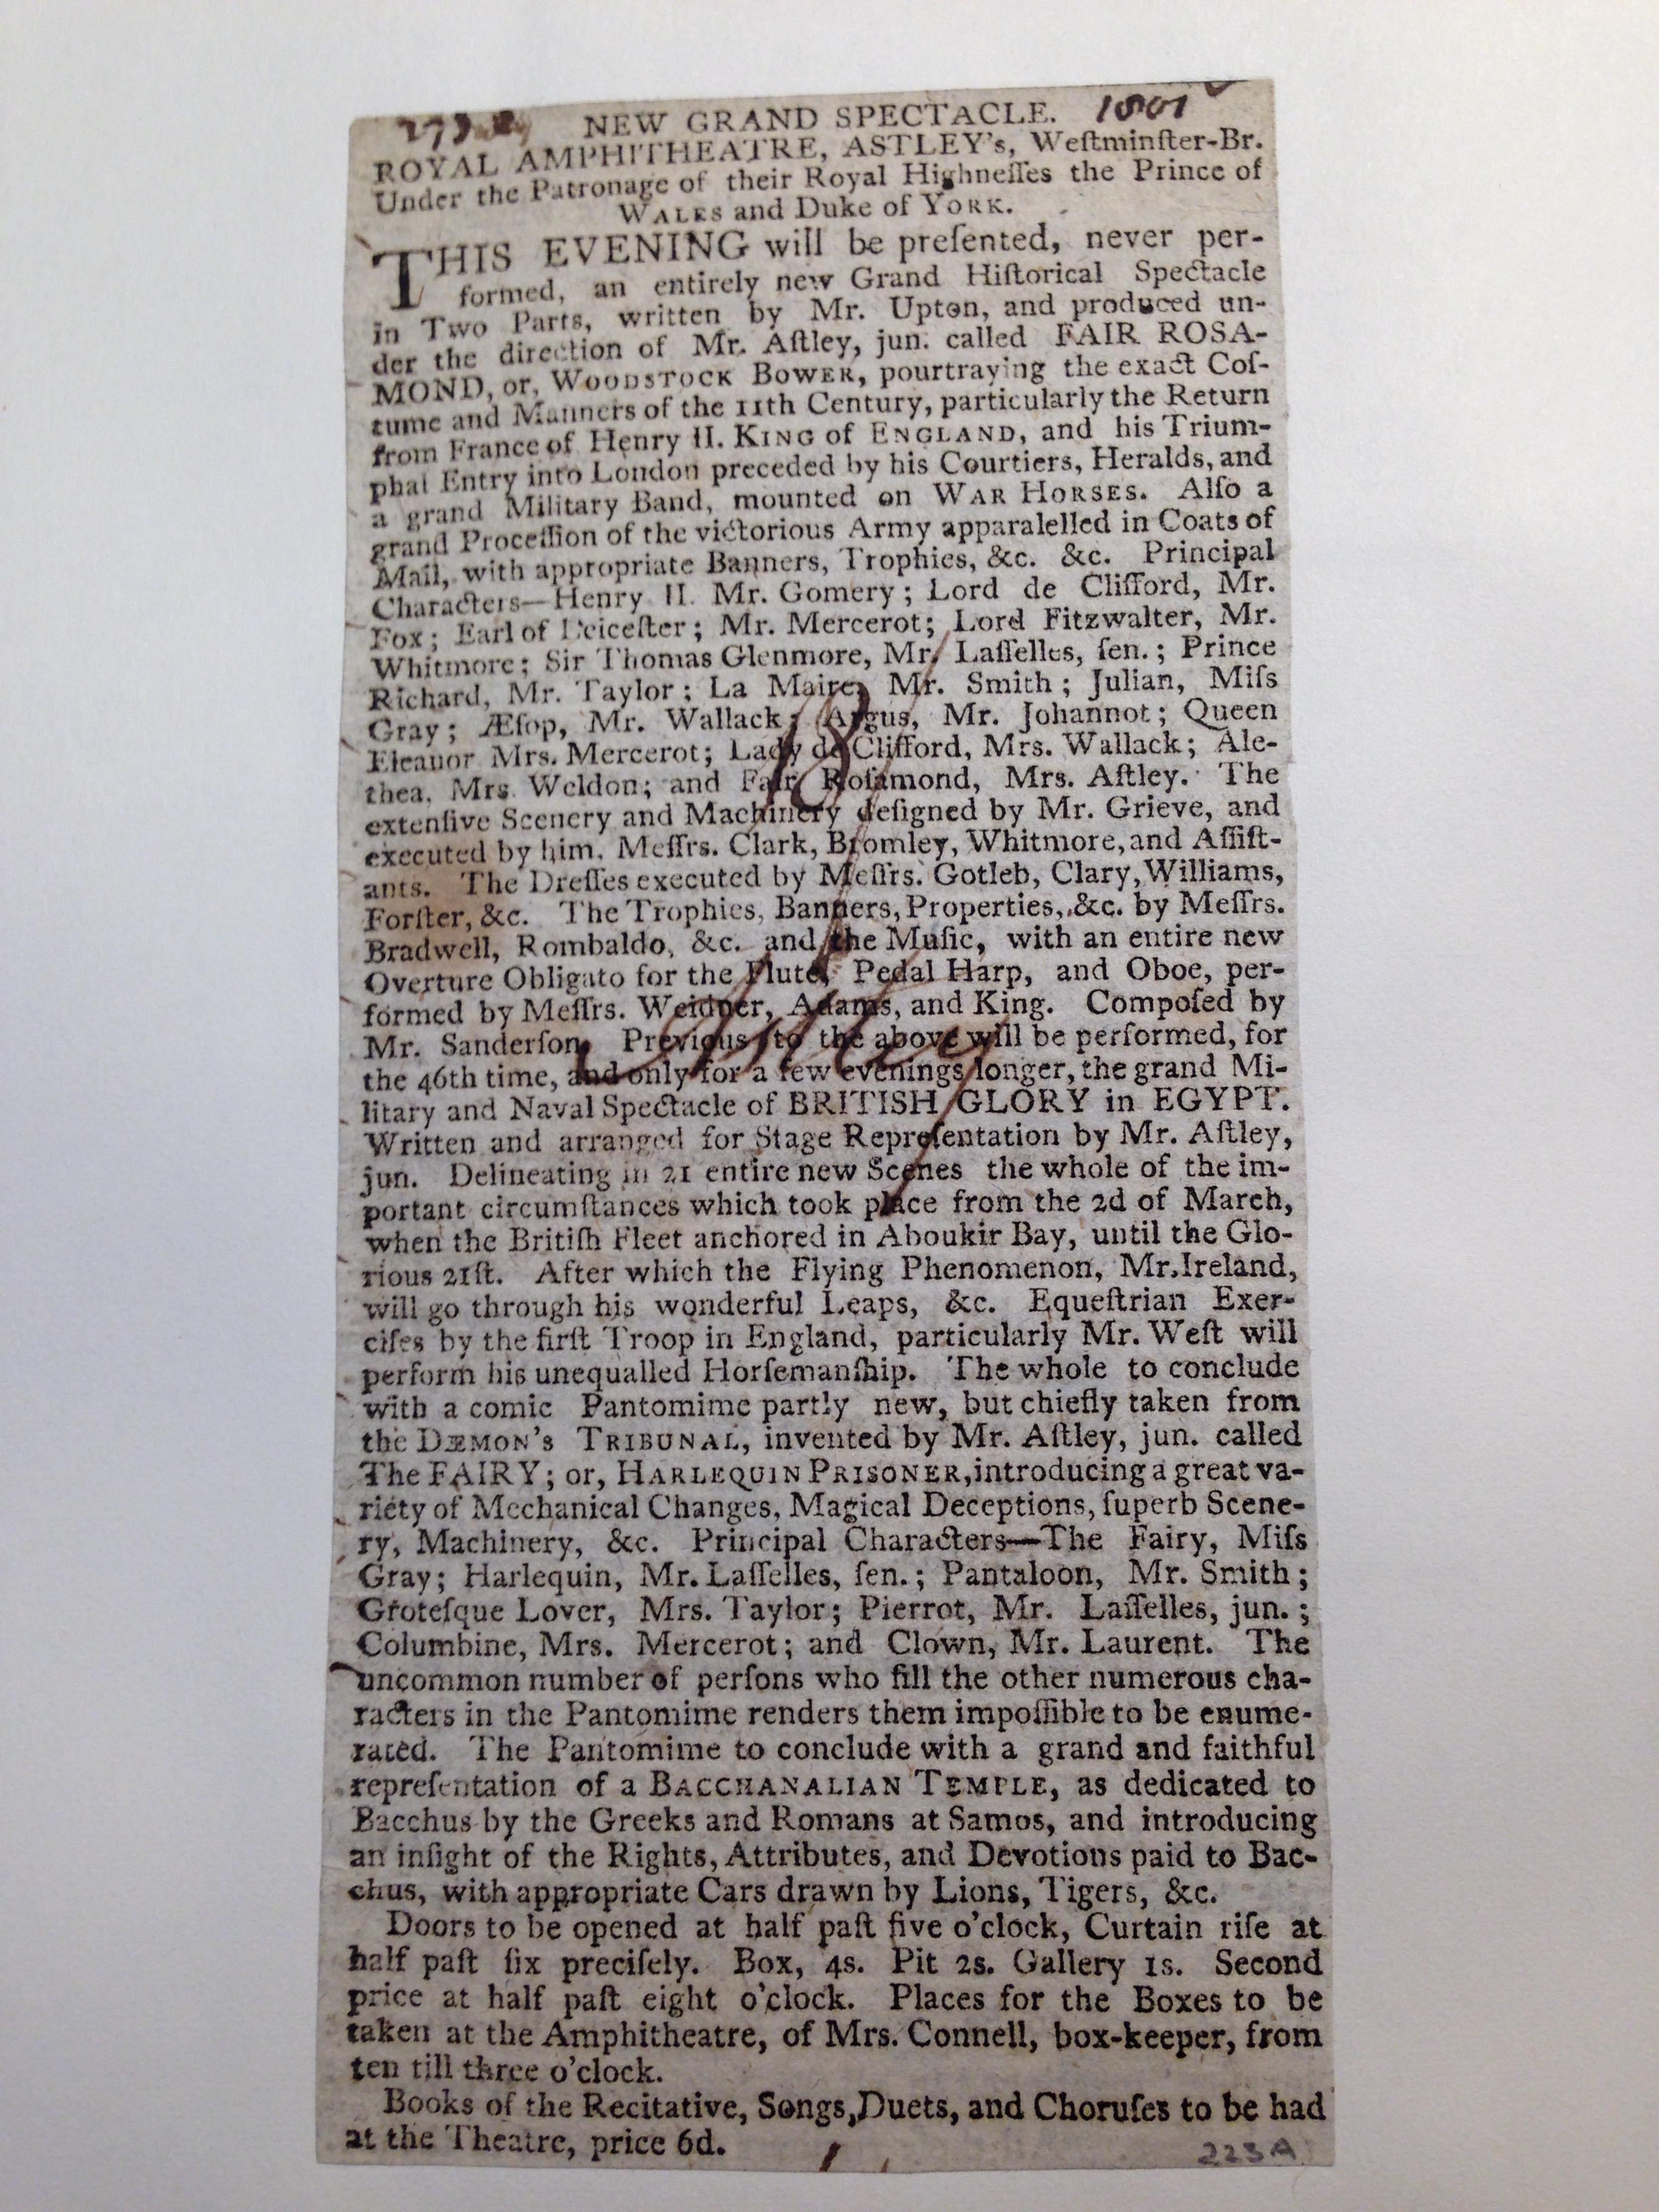 1801
NEW GRAND SPECTACLE.
ROYAL AMPHITHEATRE, ASTLEY's, Weſtminſter-Br.
Under the Patronage of their Royal Highneſſes the Prince of
WALES and Duke of YORK.
THIS EVENING will be preſented, never per-
formed, an entirely new Grand Hiſtorical Spectacle
in Two Parts, written by Mr. Upton, and produced un-
der the direction of Mr. Aſtley, jun. called FAIR ROSA-
MOND, or, WOODSTOCK BOWER, pourtraying the exact Coſ-
tume and Manners of the 11th Century, particularly the Return
from France of Henry II. KING of ENGLAND, and his Trium-
phal Entry into London preceded by his Courtiers, Heralds, and
a grand Military Band, mounted on WAR HORSES. Alſo a
grand Proceſſion of the victorious Army apparalelled in Coats of
Mail, with appropriate Banners, Trophies, &c. &c. Principal
Characters—Henry II. Mr. Gomery; Lord de Cliſſord, Mr.
Fox; Earl of Leiceſter; Mr. Mercerot; Lord Fitzwalter, Mr.
Whitmore; Sir Thomas Glenmore, Mr. Laſſelles, ſen.; Prince
Richard, Mr. Taylor; La Maire, Mr. Smith; Julian, Miſs
Gray; Æſop, Mr. Wallack; Argus, Mr. Johannot; Queen
Eleanor Mrs. Mercerot; Lady de Clifford, Mrs. Wallack; Ale-
thea, Mrs. Weldon; and Fair Roſamond, Mrs. Aſtley. The
extenſive Scenery and Machinery deſigned by Mr. Grieve, and
executed by him, Meſſrs. Clark, Bromley, Whitmore, and Aſſiſt-
ants. The Dreſſes executed by Meſſrs. Gotleb, Clary, Williams,
Forſter, &c. The Trophies, Banners, Properties, &c. by Meſſrs.
Bradwell, Rombaldo, &c. and the Muſic, with an entire new
Overture Obligato for the Flute, Pedal Harp, and Oboe, per-
formed by Meſſrs. Weidner, Adams, and King. Compoſed by
Mr. Sanderſon. Previous to the above will be performed, for
the 46th time, and only for a few evenings longer, the grand Mi-
litary and Naval Spectacle of BRITISH GLORY in EGYPT.
Written and arranged for Stage Repreſentation by Mr. Aſtley,
jun. Delineating in 21 entire new Scenes the whole of the im-
portant circumſtances which took place from the 2d of March,
when the Britiſh Fleet anchored in Aboukir Bay, until the Glo-
rious 21ſt. After which the Flying Phenomenon, Mr. Ireland,
will go through his wonderful Leaps, &c. Equeſtrian Exer-
ciſes by the firſt Troop in England, particularly Mr. Weſt will
perform his unequalled Horſemanſhip. The whole to conclude
with a comic Pantomime partly new, but chiefly taken from
the DÆMON'S TRIBUNAL, invented by Mr. Aſtley, jun. called
The FAIRY; or, HARLEQUIN PRISONER, introducing a great va-
riety of Mechanical Changes, Magical Deceptions, ſuperb Scene-
ry, Machinery, &c. Principal Characters—The Fairy, Miſs
Gray; Harlequin, Mr. Laſſelles, ſen.; Pantaloon, Mr. Smith;
Groteſque Lover, Mrs. Taylor; Pierrot, Mr. Laſſelles, jun.;
Columbine, Mrs. Mercerot; and Clown, Mr. Laurent. The
uncommon number of perſons who fill the other numerous cha-
racters in the Pantomime renders them impoſſible to be enume-
rated. The Pantomime to conclude with a grand and faithful
repreſentation of a BACCHANALIAN TEMPLE, as dedicated to
Bacchus by the Greeks and Romans at Samos, and introducing
an inſight of the Rights, Attributes, and Devotions paid to Bac-
chus, with appropriate Cars drawn by Lions, Tigers, &c.
Doors to be opened at half paſt five o'clock, Curtain riſe at
half paſt ſix preciſely. Box, 4s. Pit 2s. Gallery 1s. Second
price at half paſt eight o'clock. Places for the Boxes to be
taken at the Amphitheatre, of Mrs. Connell, box-keeper, from
ten till three o'clock.
Books of the Recitative, Songs, Duets, and Choruſes to be had
at the Theatre, price 6d.
223A